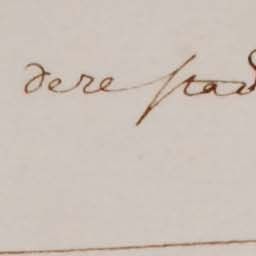 dese stad